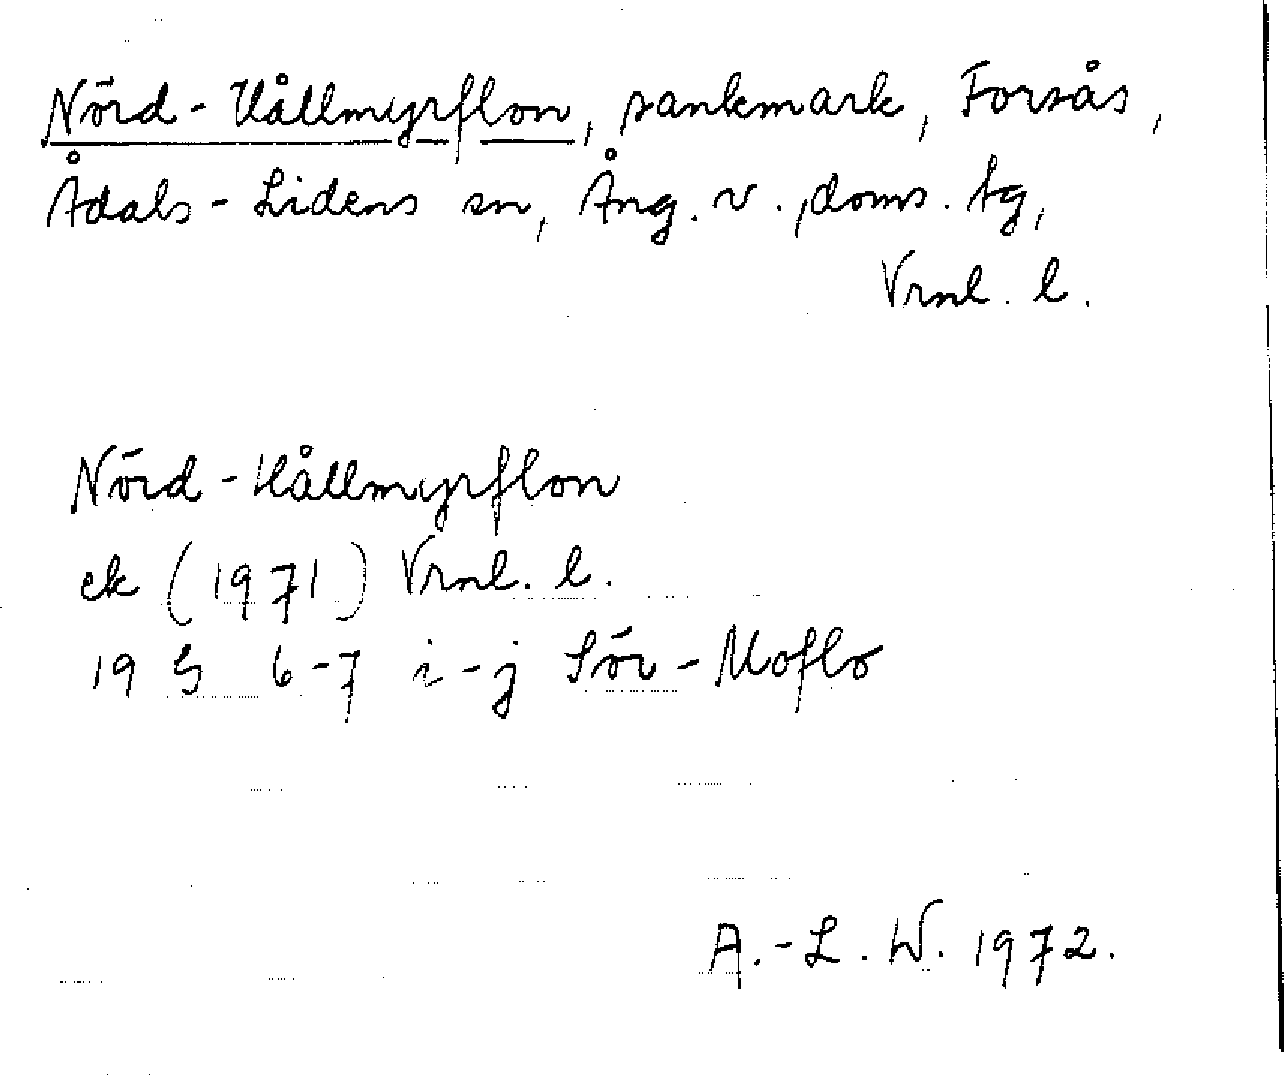 Nörd-Hållmyrflon, sankmark, Forsås,
Ådals-Lidens sn, Ång. v., doms. tg,
Vrml. l.
Nörd-Hållmyrflon
ek (1971) Vrml. l.
19 G 6-7 i-j Sör-Moflo
A.-L. W. 1972.